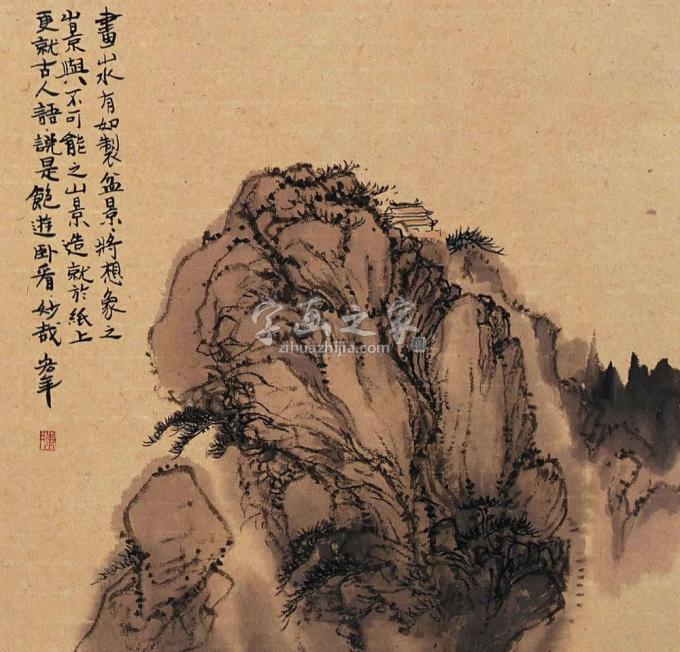 畫山水有如製盆景將想象之
山景與不可能之山景造就於紙上
更就古人語說是飽遊臥看妙哉
字画之家
zihuazhijia.com